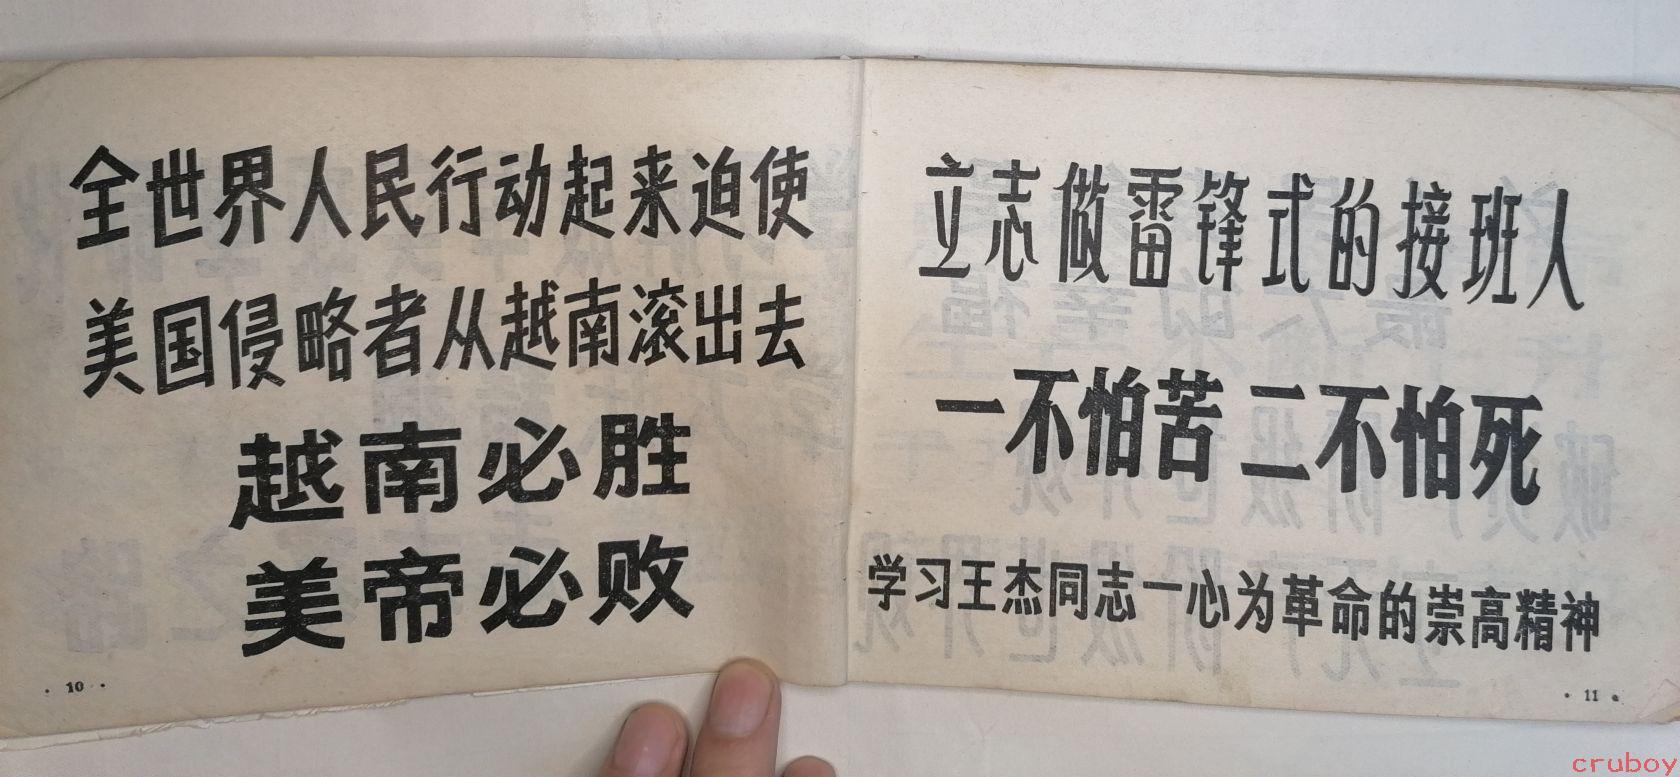 全世界人民行动起来迫使
美国侵略者从越南滚出去
越南必胜
美帝必败
· 10 ·
立志做雷锋式的接班人
一不怕苦 二不怕死
学习王杰同志一心为革命的崇高精神
· 11 ·
cruboy